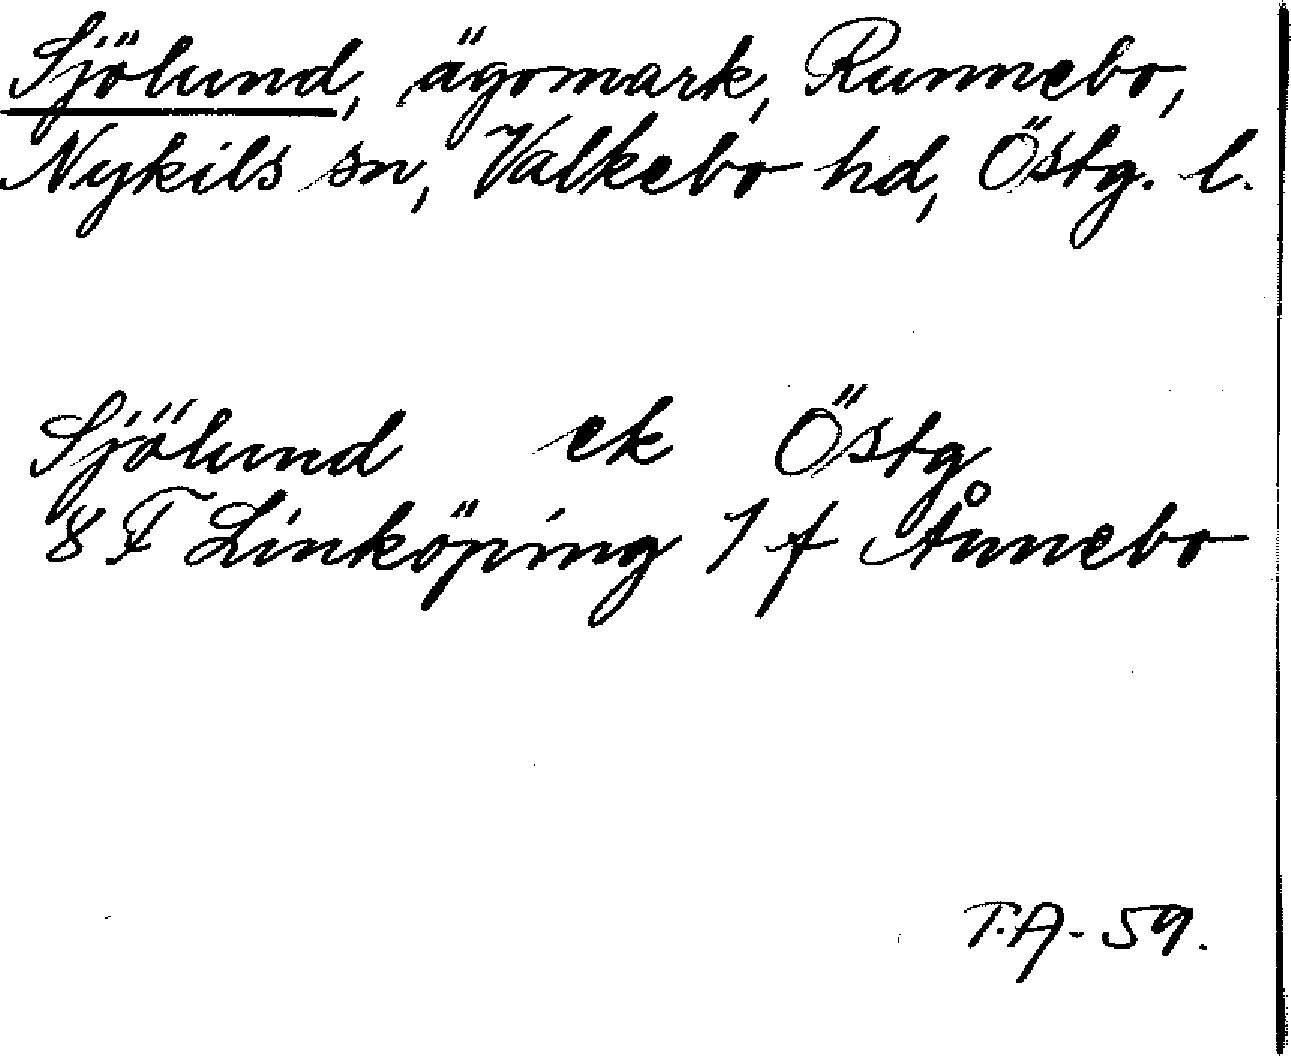 Sjölund, ägomark, Runnebo,
Nykils sn, Valkebo hd, Östg. l.
Sjölund ek Östg
8 F Linköping 1 f Ånnebo
T.A - 59.